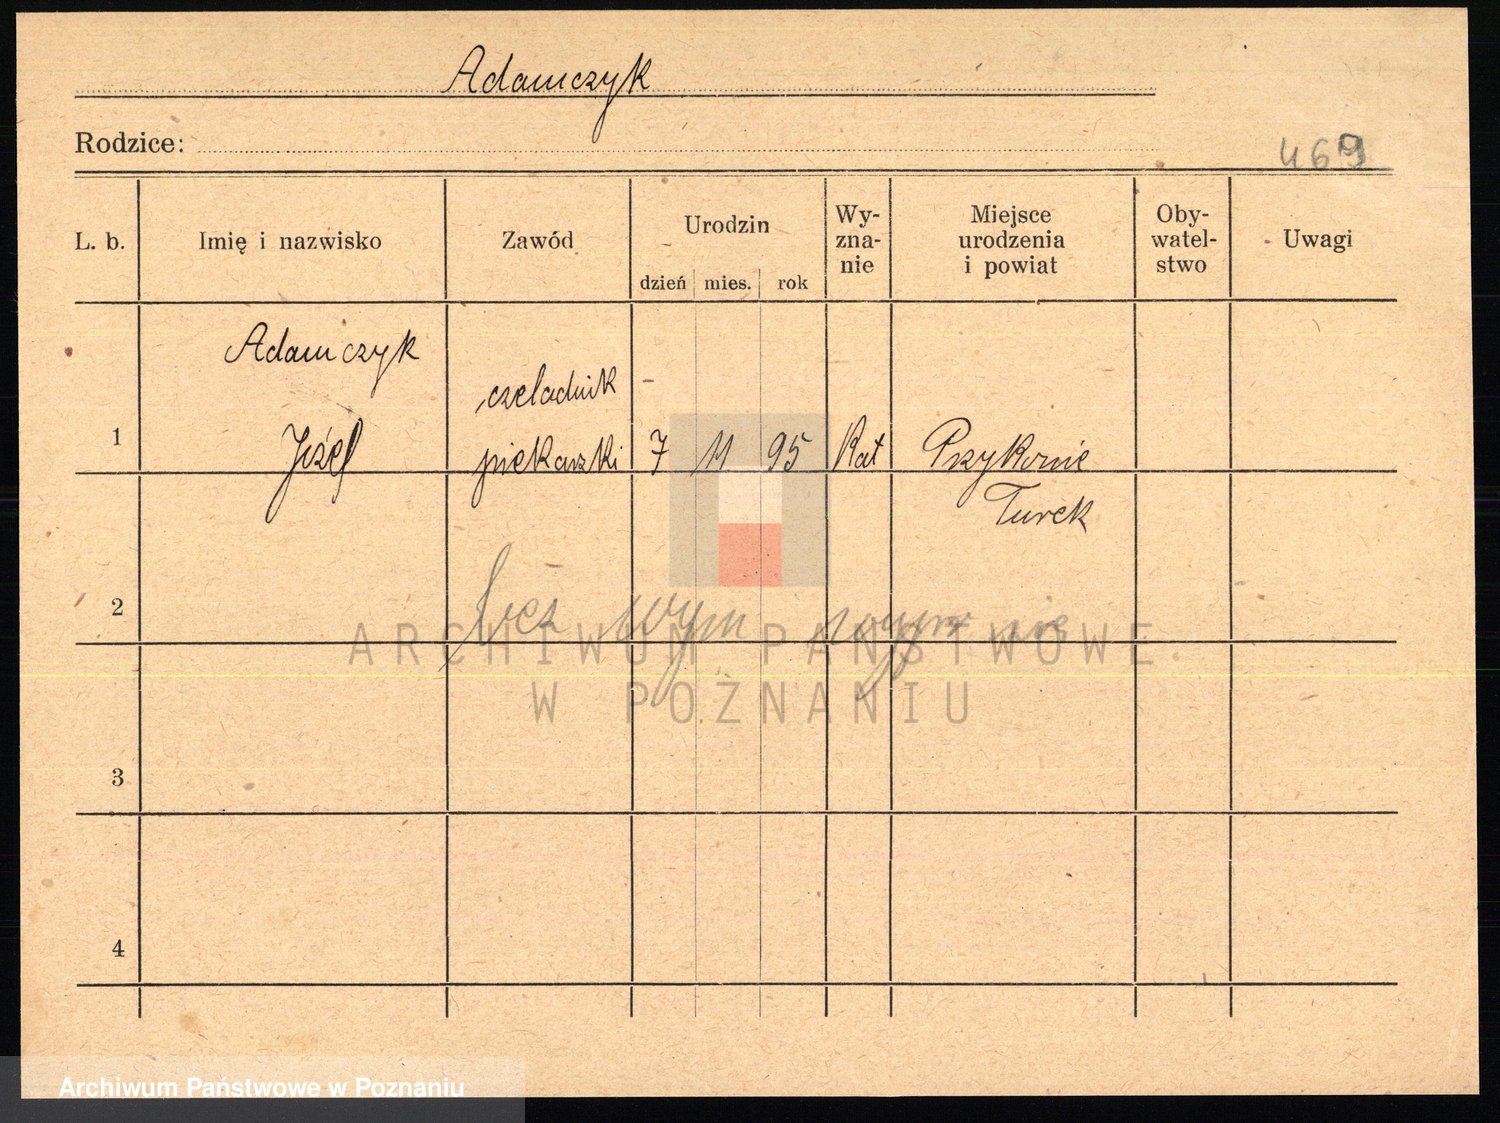 Adamczyk
Rodzice:
469
L. b.
Imię i nazwisko
Zawód
Urodzin
dzień mies. rok
Wy-
zna-
nie
Miejsce
urodzenia
i powiat
Oby-
watel-
stwo
Uwagi
Adamczyk
czeladnik
1 Józef piekarski 7 11 95 Kat Przykonie
Turek
2
bez
ARCHIWUM PAŃSTWOWE
W POZNANIU
3
4
Archiwum Państwowe w Poznaniu